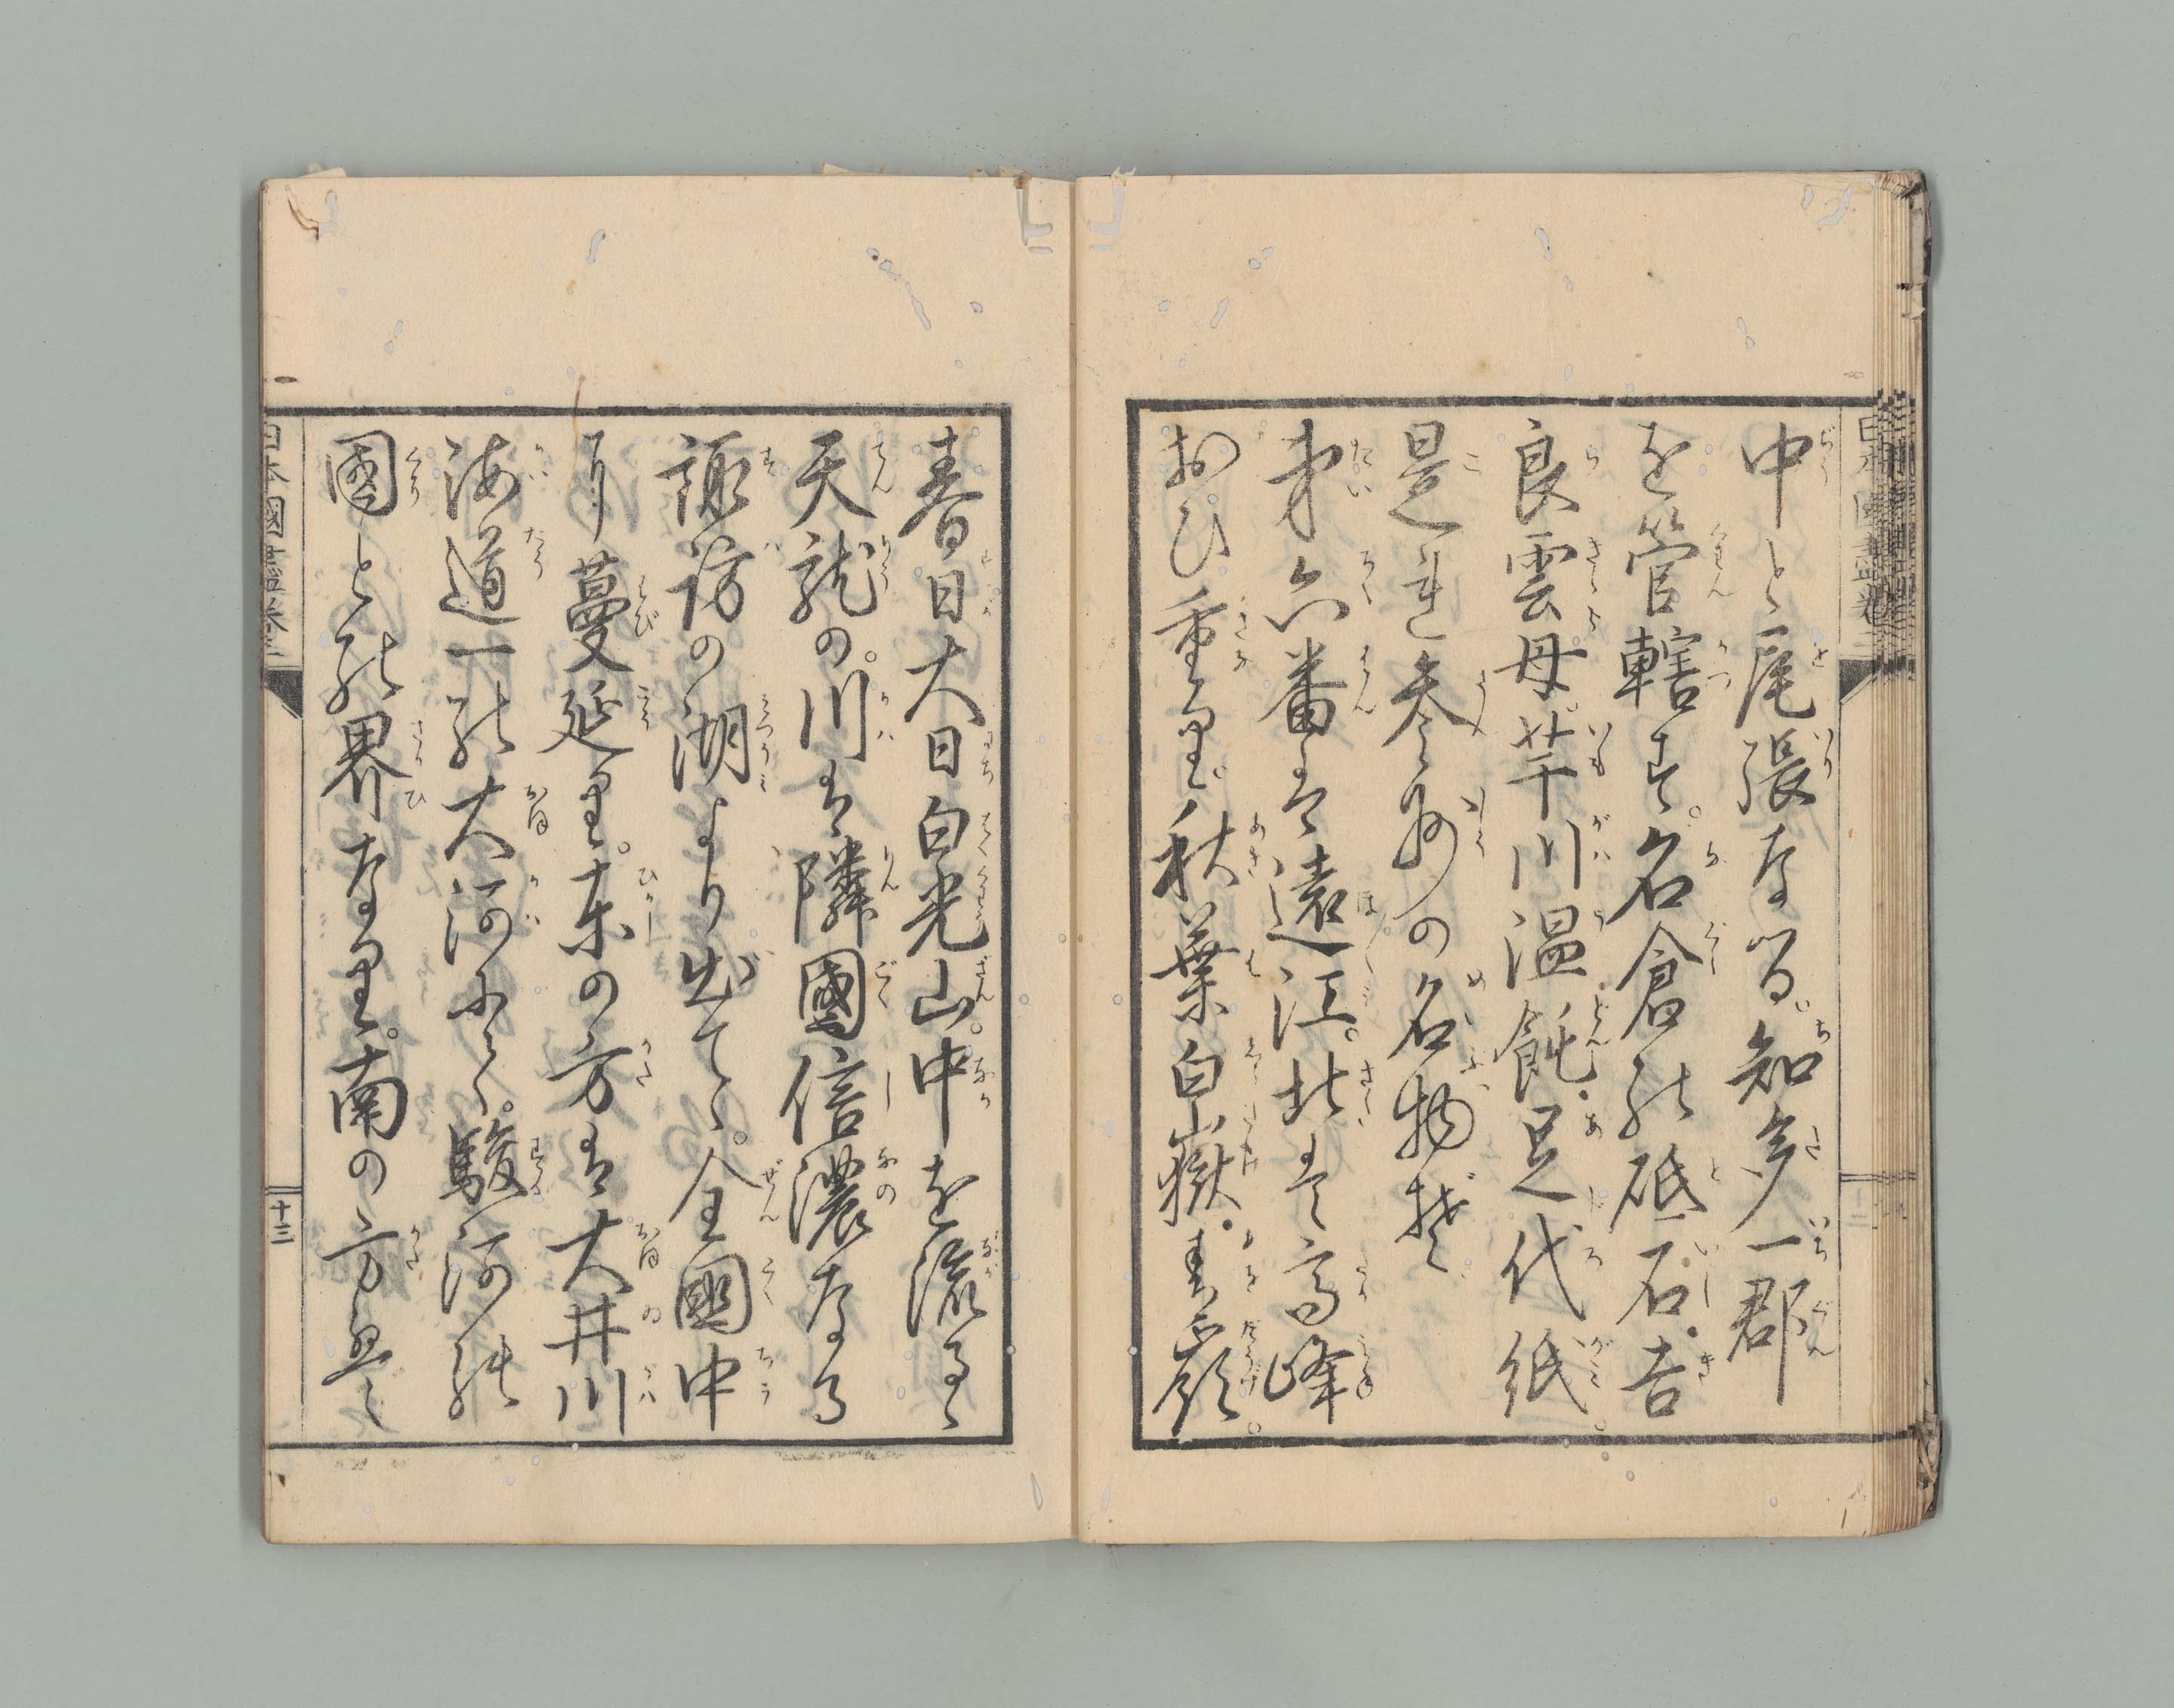 中と尾張なる。知多一郡
を管轄す。名倉の砥石・吉
良雲母・芋川温飩・足代紙。
是ぞ参州の名物ぞ
第六番は遠江。北は高峰
おひ重り。秋葉白嶽・春嶺。
春日大日白光山。中を流るゝ
天龍の。川は隣國信濃なる
諏訪の湖より出でゝ。全國中
に蔓延り。東の方は大井川
海道一の大河にて。駿河の
國との界なり。南の方は
十三